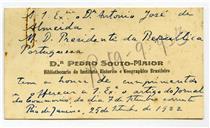 S. Ex.ª o Dr. Antonio José de
Almeida
M. D. Presidente da Republica
Portugueza
D.º PEDRO SOUTO-MAIOR
Bibliothecario do Instituto Historico e Geographico Brasileiro
tem a honra de cumprimentar
e offerecer a S. Ex.ª o artigo do Jornal
do Commercio, do dia 7 de Setembro corrente
Rio de Janeiro, 25 de Setembro de 1922